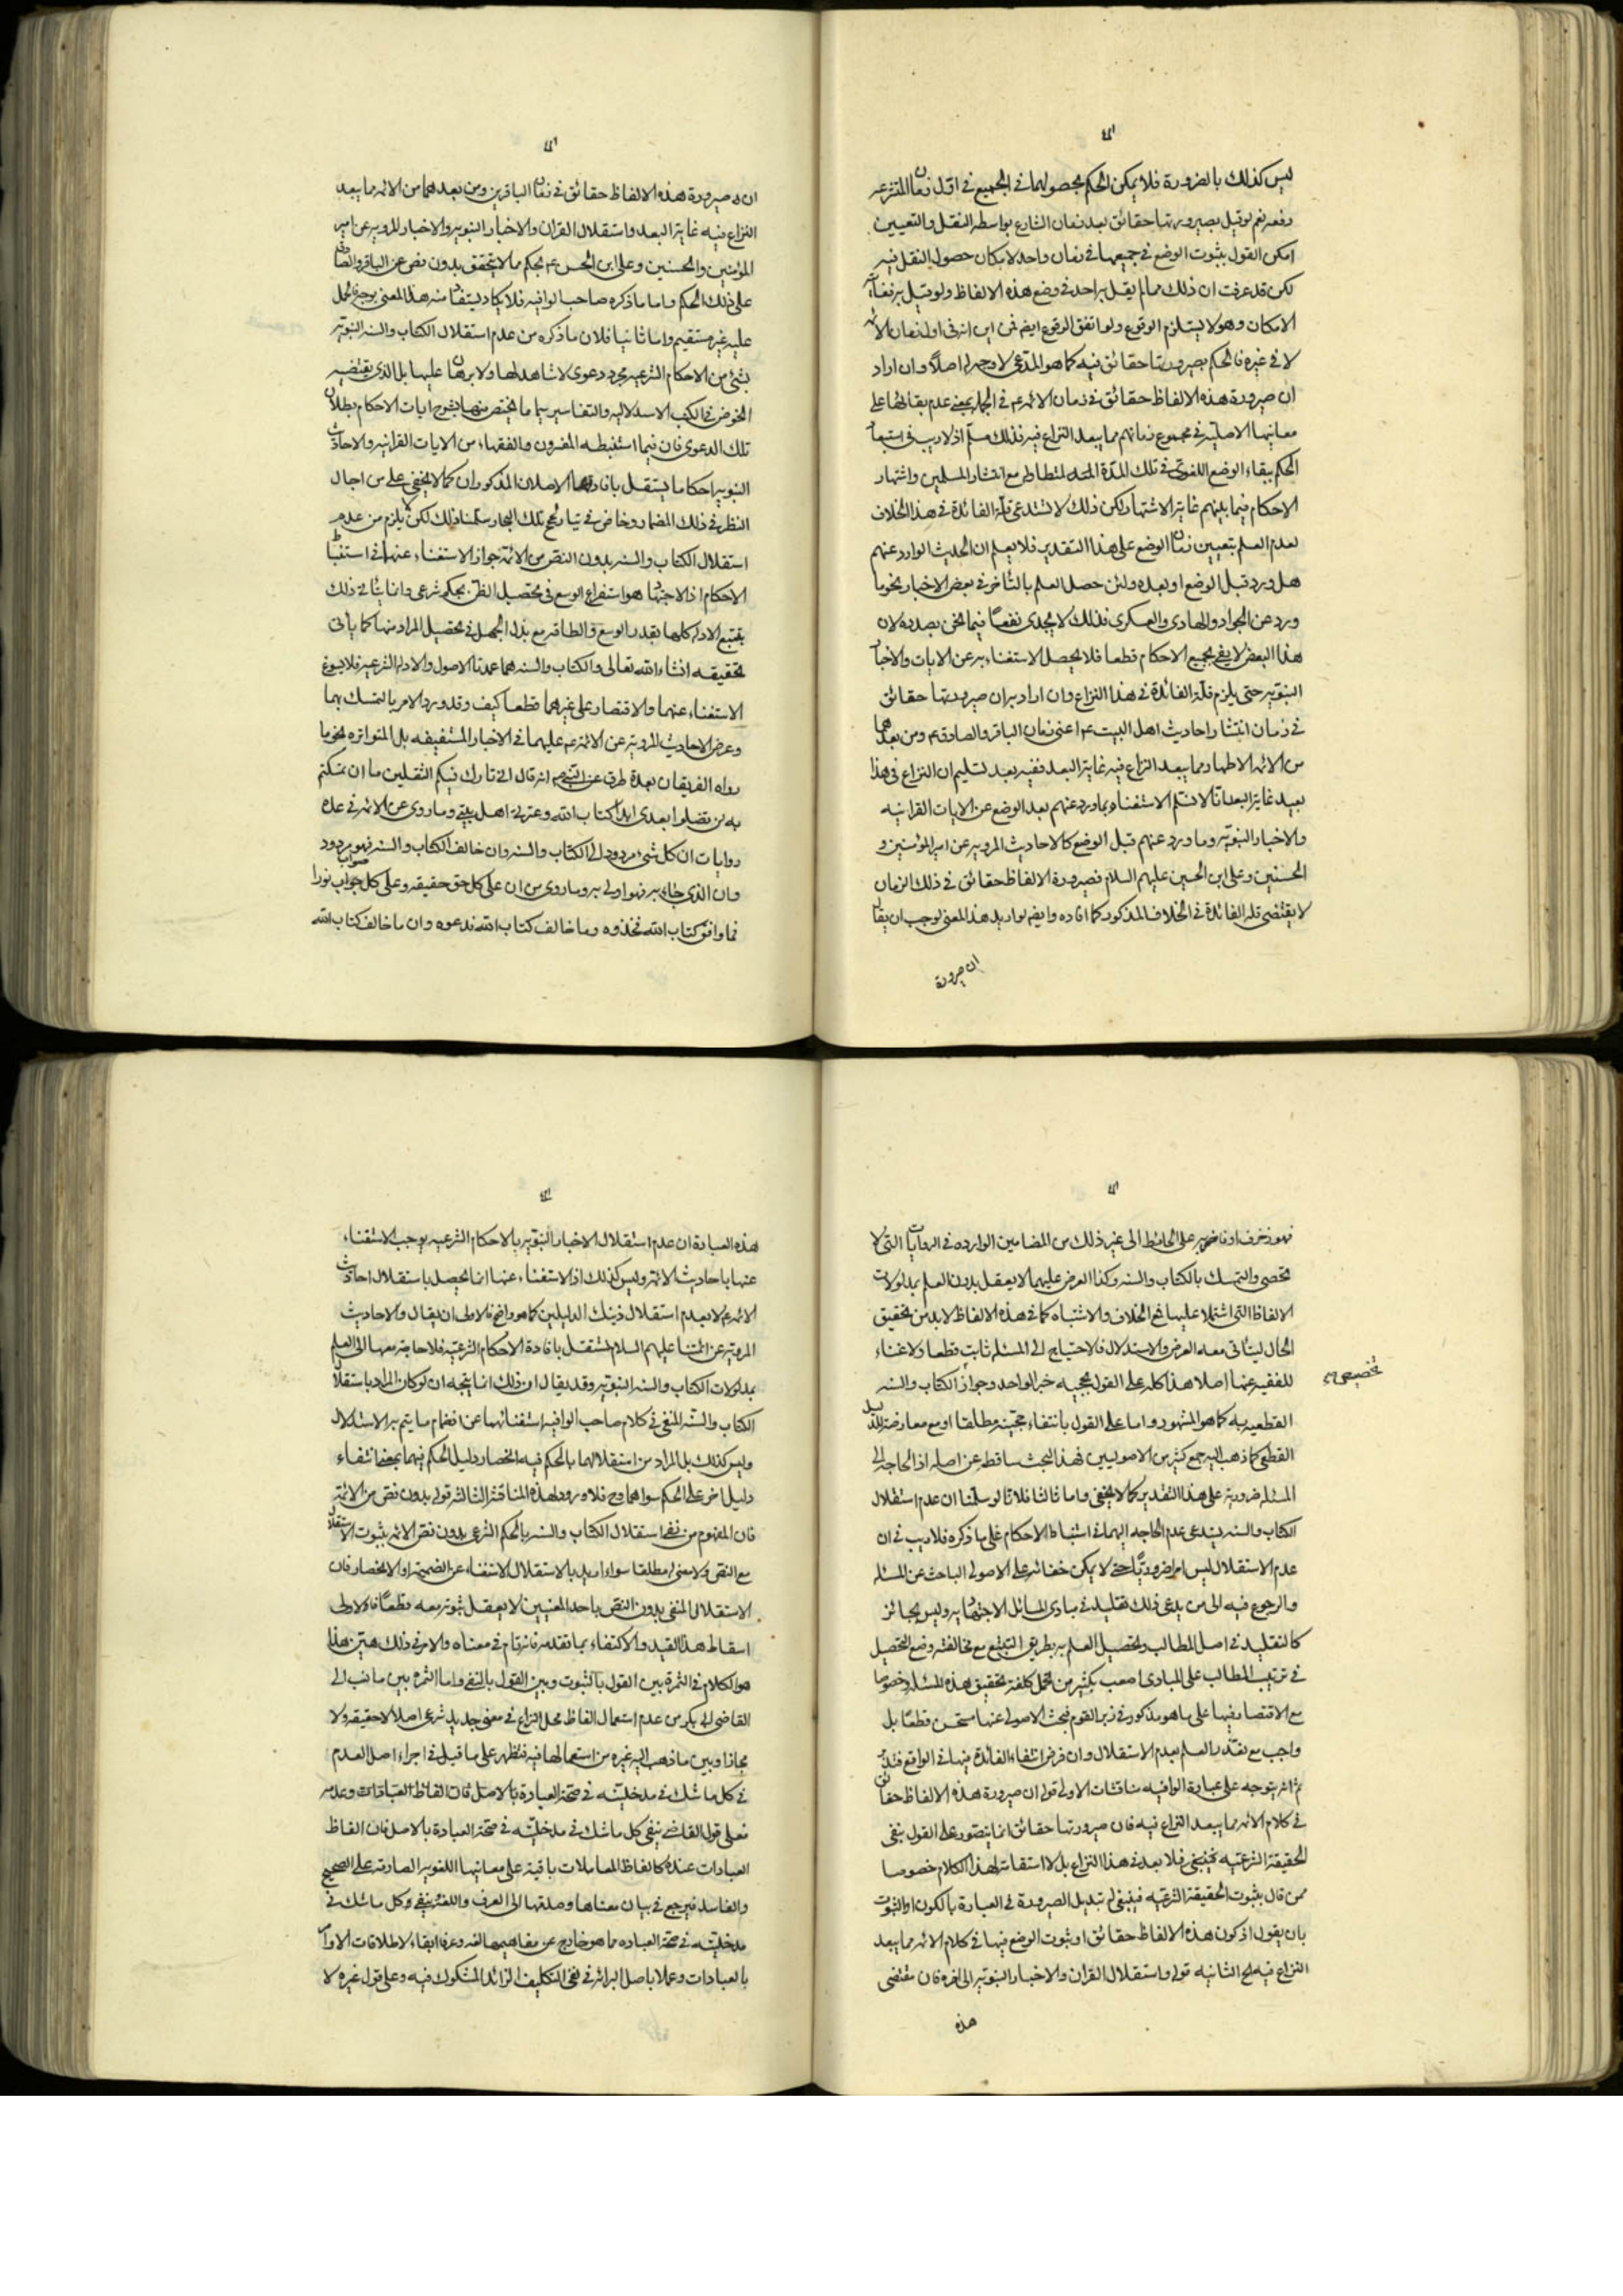 ليس كذلك بالضرورة فلا يمكن الحكم بحصولهما في الجميع في اول زمان المتشرعه
دفعه نعم لو قيل بصيرورتها حقائق بعد زمان الشارع بواسطه النقل والتعيين
امكن القول بثبوت الوضع في جميعها في زمان واحد لامكان حصول النقل فيه
لكن قد عرفت ان ذلك مما لم يقل به احد في وضع هذه الالفاظ ولو قيل به فغايته
الامكان وهو لا يستلزم الوقوع ولو اتفق الوقوع ايضا فمن اين انه في اول زمان الائمه
لا في غيره فالحكم بصيرورتها حقائق فيه كما هو المدعى لا وجه له اصلا وان اراد
ان صيرورة هذه الالفاظ حقائق في زمان الائمه ع في الجمله بمعنى عدم بقائها على
معانيها الاصليه في مجموع زمانهم مما يبعد النزاع فيه فذلك مسلم اذ لا ريب في استبعاد
الحكم ببقاء الوضع اللغوى في تلك المدة المتطاوله مع انتشار المسلمين واشتهار
الاحكام فيما بينهم غاية الاشتهار لكن ذلك لا يستدعي قلة الفائدة في هذا الخلاف
لعدم العلم بتعيين زمان الوضع على هذا التقدير فلا يعلم ان الحديث الوارد عنهم
هل ورد قبل الوضع او بعده ولئن حصل العلم بالتاخر في بعض الاخبار نحو ما
ورد عن الجواد والهادى والعسكرى فذلك لا يجدى نفعا فيما نحن بصدده لان
هذا البعض لا يفى بجميع الاحكام قطعا فلا يحصل الاستغناء به عن الايات والاخبار
النبويه حتى يلزم قلة الفائدة في هذا النزاع وان اراد به ان صيرورتها حقائق
في زمان انتشار احاديث اهل البيت ع اعنى زمان الباقر والصادق ع ومن بعدهما
من الائمه الاطهار مما يبعد النزاع فيه غاية البعد ففيه بعد تسليم ان النزاع في هذا
بعيد غاية البعد انا لا نسلم الاستغناء بما ورد عنهم بعد الوضع عن الايات القرانيه
والاخبار النبويه وما ورد عنهم قبل الوضع كالاحاديث المرويه عن امير المؤمنين و
الحسنين وعلى ابن الحسين عليهم السلام فصيرورة الالفاظ حقائق في ذلك الزمان
لا يقتضى قلة الفائدة في الخلاف المذكور كما افاده وايضا لو اريد هذا المعنى لوجب ان يقال
ان صيرورة
ان صيرورة هذه الالفاظ حقائق في زمان الباقرين ومن بعدهما من الائمه مما يبعد
النزاع فيه غاية البعد واستقلال القران والاخبار النبويه والاخبار المرويه عن امير
المؤمنين والحسنين وعلى ابن الحسين ع بحكم مما لا يتحقق بدون نص عن الباقر والصادق
على ذلك الحكم واما ما ذكره صاحب الوافيه فلا يكاد يستفاد منه هذا المعنى بوجه فالحمل
عليه غير مستقيم واما ثانيا فلان ما ذكره من عدم استقلال الكتاب والسنه النبويه
بشئ من الاحكام الشرعيه مجرد دعوى لا شاهد لها ولا برهان عليها بل الذى يقتضيه
الخوض في الكتب الاستدلاليه والتفاسير سيما ما يختص منها بشرح ايات الاحكام بطلان
تلك الدعوى فان فيما استنبطه المفسرون والفقهاء من الايات القرانيه والاحاديث
النبويه احكاما يستقل بافادتها الاصلان المذكوران كما لا يخفى على من اجال
النظر في ذلك المضمار وخاض في تيار لجج تلك البحار سلمنا ذلك لكن لا يلزم من عدم
استقلال الكتاب والسنه بدون النص من الائمة جواز الاستغناء عنهما في استنباط
الاحكام اذ الاجتهاد هو استفراغ الوسع في تحصيل الظن بحكم شرعى وانما يتاتى ذلك
بتتبع الادله كلها بقدر الوسع والطاقه مع بذل الجهد في تحصيل المراد منها كما ياتى
تحقيقه انشاء الله تعالى والكتاب والسنه هما عمدتا الاصول والادله الشرعيه فلا يسوغ
الاستغناء عنهما والاقتصار على غيرهما قطعا كيف وقد ورد الامر بالتمسك بهما
وعرض الاحاديث المرويه عن الائمه ع عليهما في الاخبار المستفيضه بل المتواتره نحو ما
رواه الفريقان بعدة طرق عن النبى ص انه قال انى تارك فيكم الثقلين ما ان تمسكتم
به لن تضلوا بعدى ابدا كتاب الله وعترتى اهل بيتى وما روى عن الائمه في عدة
روايات ان كل شئ مردود الى الكتاب والسنه وان خالف الكتاب والسنه فهو مردود
وان الذى جاء به فهو اولى به وما روى من ان على كل حق حقيقه وعلى كل صواب نورا
فما وافق كتاب الله فخذوه وما خالف كتاب الله فدعوه وان ما خالف كتاب الله
فهو زخرف او فاضربوه على الحائط الى غير ذلك من المضامين الوارده في الروايات التى لا
تحصى والتمسك بالكتاب والسنه وكذا العرض عليهما لا يعقل بدون العلم بمدلولات
الالفاظ التى اشتملا عليها فمع الخلاف والاشتباه كما في هذه الالفاظ لا بد من تحقيق
الحال ليتاتى معه العرض والاستدلال فالاحتياج الى المسئله ثابت قطعا ولا غناء
للفقيه عنها اصلا هذا كله على القول بحجيه خبر الواحد وجواز الكتاب والسنه
تخصيص
القطعيه به كما هو المشهور واما على القول بانتفاء حجيته مطلقا او مع معارضة الدليل
القطعى كما ذهب اليه جمع كثير من الاصوليين فهذا البحث ساقط عن اصله اذ الحاجه الى
المسئله ضرورية على هذا التقدير كما لا يخفى واما ثالثا فلانا لو سلمنا ان عدم استقلال
الكتاب والسنه يستدعى عدم الحاجه اليهما في استنباط الاحكام على ما ذكره فلا ريب في ان
عدم الاستقلال ليس امرا ضروريا حتى لا يمكن خفائه على الاصولى الباحث عن المسئله
والرجوع فيه الى من يدعى ذلك تقليد في مبادى المسائل الاجتهاديه وليس بجائز
كالتقليد في اصل المطالب وتحصيل العلم به بطريق التتبع مع مخالفته وضع التحصيل
في ترتيب المطالب على المبادى اصعب بكثير من تحمل كلفة تحقيق هذه المسئله وخصوصا
مع الاقتصار فيها على ما هو مذكور في زبر القوم فبحث الاصولى عنها مستحسن قطعا بل
واجب مع تقدير العلم بعدم الاستقلال وان فرض انتفاء الفائدة فيها في الواقع فتدبر
ثم انه يتوجه على عبارة الوافيه مناقشات الاولى قوله ان صيرورة هذه الالفاظ حقائق
في كلام الائمه مما يبعد النزاع فيه فان صيرورتها حقائق انما يتصور على القول بنفى
الحقيقة الشرعيه فلا بعد في هذا النزاع بل لا استقامة لهذا الكلام خصوصا
ممن قال بثبوت الحقيقة الشرعيه فينبغى له تبديل الصيرورة في العبارة بالكون او الثبوت
بان يقول اذ كون هذه الالفاظ حقائق او ثبوت الوضع فيها في كلام الائمه مما يبعد
النزاع فيه الخ الثانيه قوله واستقلال القران والاخبار النبويه الى اخره فان مقتضى
هذه
هذه العبارة ان عدم استقلال الاخبار النبويه بالاحكام الشرعيه يوجب الاستغناء
عنها باحاديث الائمه وليس كذلك اذ الاستغناء عنها انما يحصل باستقلال احاديث
الائمه ع لا بعدم استقلال ذينك الدليلين كما هو واضح فالاولى ان يقال والاحاديث
المرويه عن ائمتنا عليهم السلام تستقل بافادة الاحكام الشرعيه فلا حاجة معها الى العلم
بمدلولات الكتاب والسنه النبويه وقد يقال ان ذلك انما يتجه ان لو كان المراد باستقلال
الكتاب والسنه المنفى في كلام صاحب الوافيه استغنائهما عن انضمام ما يتم به الاستدلال
وليس كذلك بل المراد من استقلالهما بالحكم فيه انحصار دليل الحكم فيهما بمعنى انتفاء
دليل اخر على الحكم سواهما وح فلا ورود لهذه المناقشة الثالثه قوله بدون نص من الائمة
فان المفهوم من نفى استقلال الكتاب والسنه بالحكم الشرعى بدون نص الائمه ثبوت الاستقلال
مع النص ولا معنى له مطلقا سواء اريد بالاستقلال الاستغناء عن الضميمه او الانحصار فان
الاستقلال المنفى بدون النص باحد المعنيين لا يعقل ثبوته معه قطعا فالاولى
اسقاط هذا القيد والاكتفاء بما تقدمه فانه تام في معناه والامر في ذلك هين هذا
هو الكلام في الثمرة بين القول بالثبوت وبين القول بالنفى واما الثمرة بين ما نسب الى
القاضى ابى بكر من عدم استعمال الفاظ محل النزاع في معنى جديد شرعى اصلا لا حقيقه ولا
مجازا وبين ما ذهب اليه غيره من استعمالها فيه فتظهر على ما قيل في اجراء اصل العدم
في كل ما شك في مدخليته في صحة العبادة بالاصل فان الفاظ العبادات وعدمه
فعلى قول القاضى ينفى كل ما شك في مدخليته في صحة العبادة بالاصل فان الفاظ
العبادات عنده كالفاظ المعاملات باقية على معانيها اللغويه الصادقة على الصحيح
والفاسد فيرجع في بيان معناها وصدقها الى العرف واللغة وينفى كل ما شك في
مدخليته في صحة العباده مما هو خارج عن مفاهيمها لغه وعرفا ابقاء لاطلاقات الاوامر
بالعبادات وعملا باصل البرائه في نفى التكليف الزائد المشكوك فيه وعلى قول غيره لا